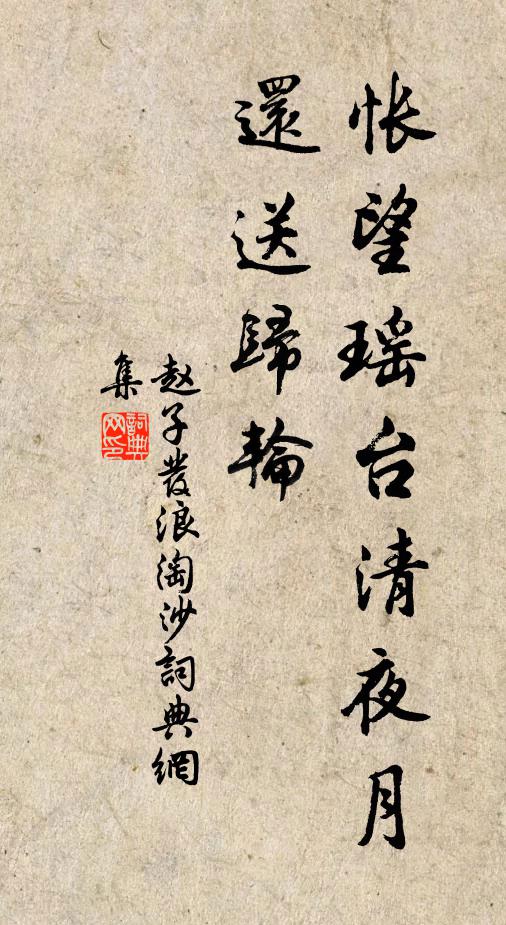 怅望瑶台清夜月
還送歸輪
赵子發浪淘沙詞典網
集
詞典网印